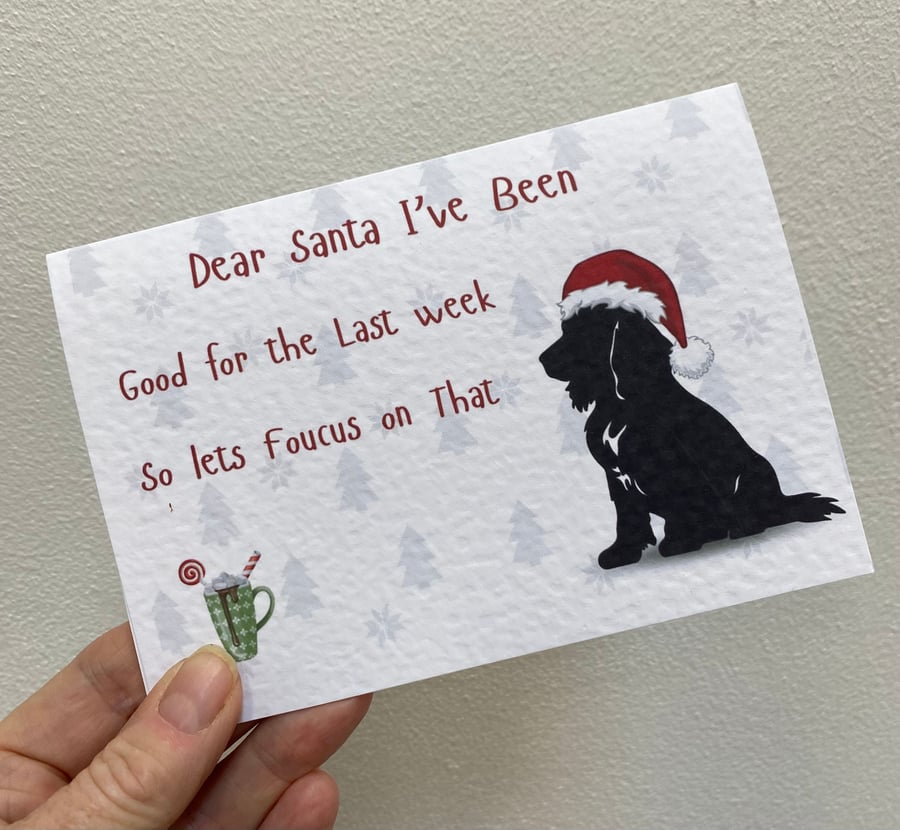 Dear Santa I've Been
Good for the Last week
So lets Foucus on That